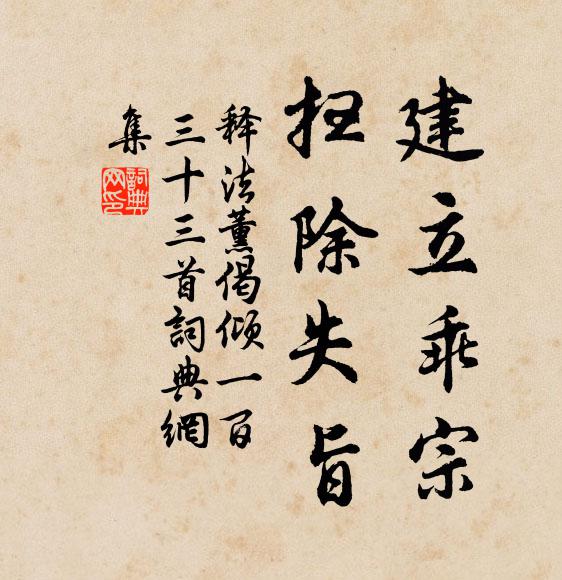 建立乖宗
扫除失旨
释法薰偈倾一百
三十三首詞典網
集
詞典
网印